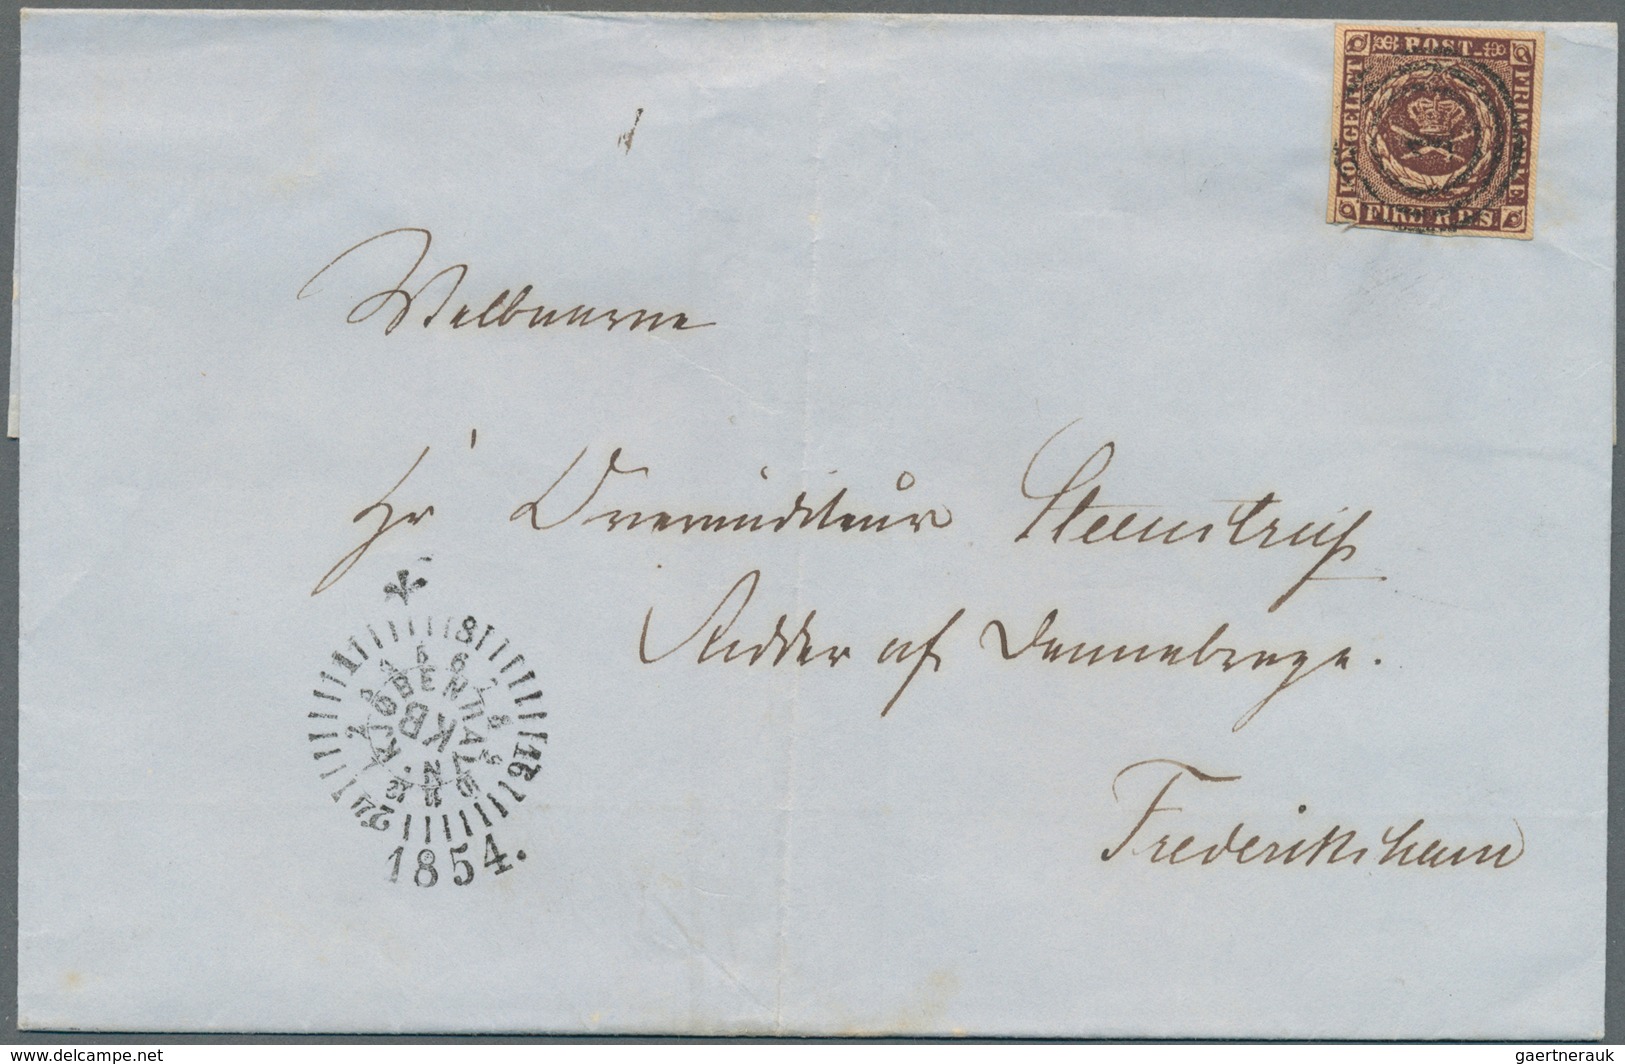 KONGELIGT POST FRIMÆRKE
FIRE R.B.S.
Welbaarne
Hr Overauditeur Steenstrup
Ridder af Dannebroge.
Frederikshavn
KJØBENHAVN
KB
1854.
www.delcampe.net
gaertnerauk